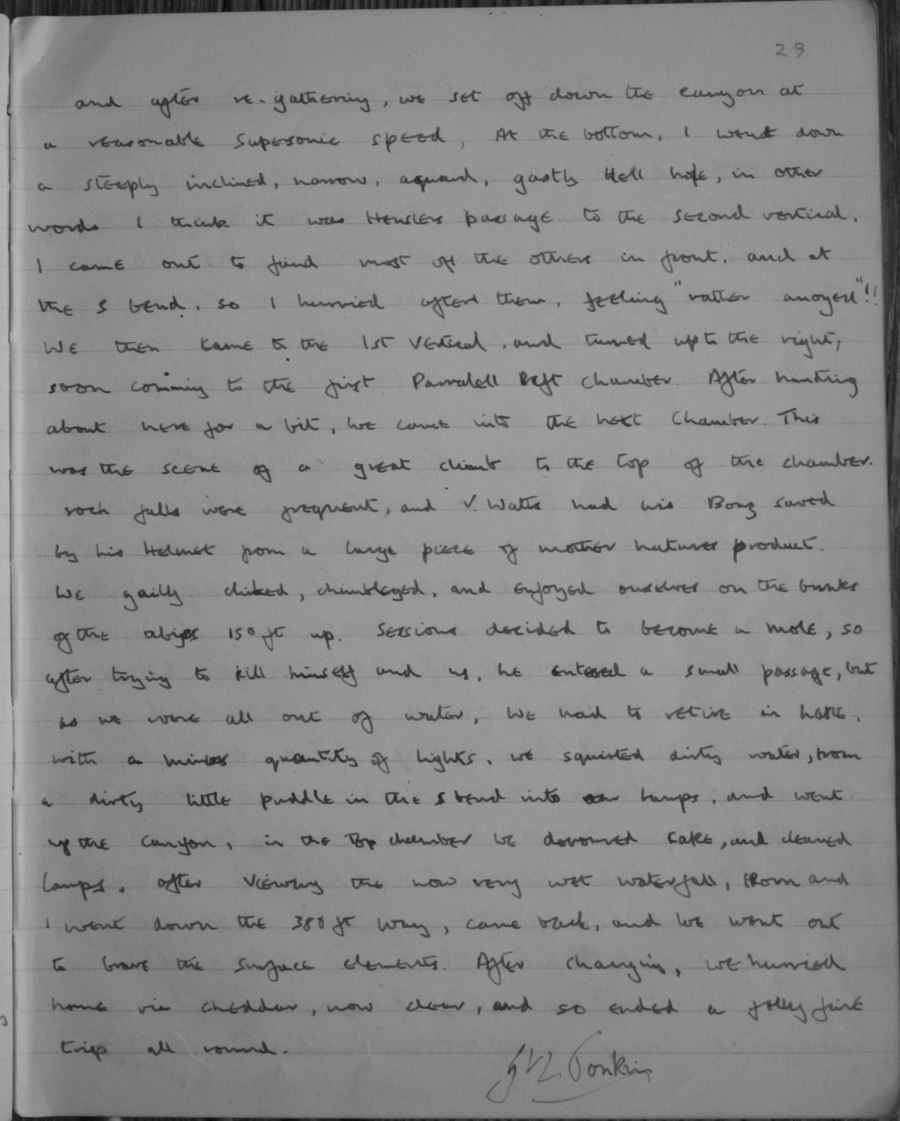 29
and after re-gathering, we set off down the canyon at
a reasonable supersonic speed, At the bottom, I went down
a steeply inclined, narrow, aquard, gastly Hell hole, in other
words I think it was Henslers passage to the second vertical.
I came out to find most of the others in front, and at
the S bend. so I hurried after them, feeling "rather anoyed"!!
We then came to the 1st vertical, and turned up to the right,
soon comming to the first Parralell Rift chamber. After hunting
about here for a bit, we came into the next Chamber. This
was the scene of a great climb to the top of the chamber.
rock falls were frequent, and V. Watts had his Bonz saved
by his Helmet from a large piece of mother natures product.
We gaily climbed, chimbleyed, and enjoyed ourselves on the brinks
of the abiyss 150 ft up. Sessions decided to become a mole, so
after trying to kill himself and us, he entered a small passage, but
as we were all out of water, we had to retire in haste,
with a minus quantity of lights, we squirted dirty water, from
a dirty little puddle in the S bend into our lamps, and went
up the canyon, in the Top chamber we devoured cake, and cleaned
lamps. after viewing the now very wet waterfall, and
I went down the 380 ft way, came back, and we went out
to brave the surface elements. After changing, we hurried
home via cheddar, now clear, and so ended a jolly fine
trip all round.
Tonkin